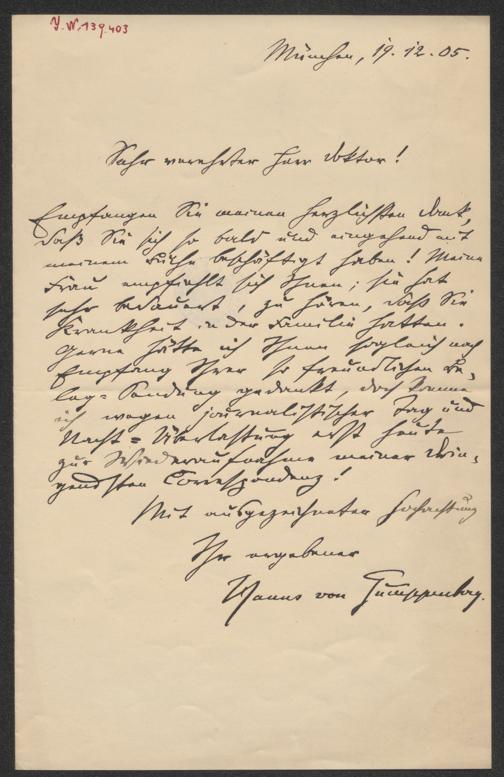 J.N. 139.403
München, 19.12.05.
Sehr verehrter Herr Doktor!
Empfangen Sie meinen herzlichsten Dank,
daß Sie sich so bald und eingehend mit
meinem Buche beschäftigt haben! Meine
Frau empfiehlt sich Ihnen; sie hat
sehr bedauert, zu hören, daß Sie
Krankheit in der Familie hatten.
Gerne hätte ich Ihnen sogleich nach
Empfang Ihrer so freundlichen Be-
leg-Sendung gedankt, doch komme
ich wegen journalistischer Tag und
Nacht-Überlastung erst heute
zur Wiederaufnahme meiner drin-
gendsten Correspondenz!
Mit ausgezeichneter Hochachtung
Ihr ergebener
Hanns von Gumppenberg.